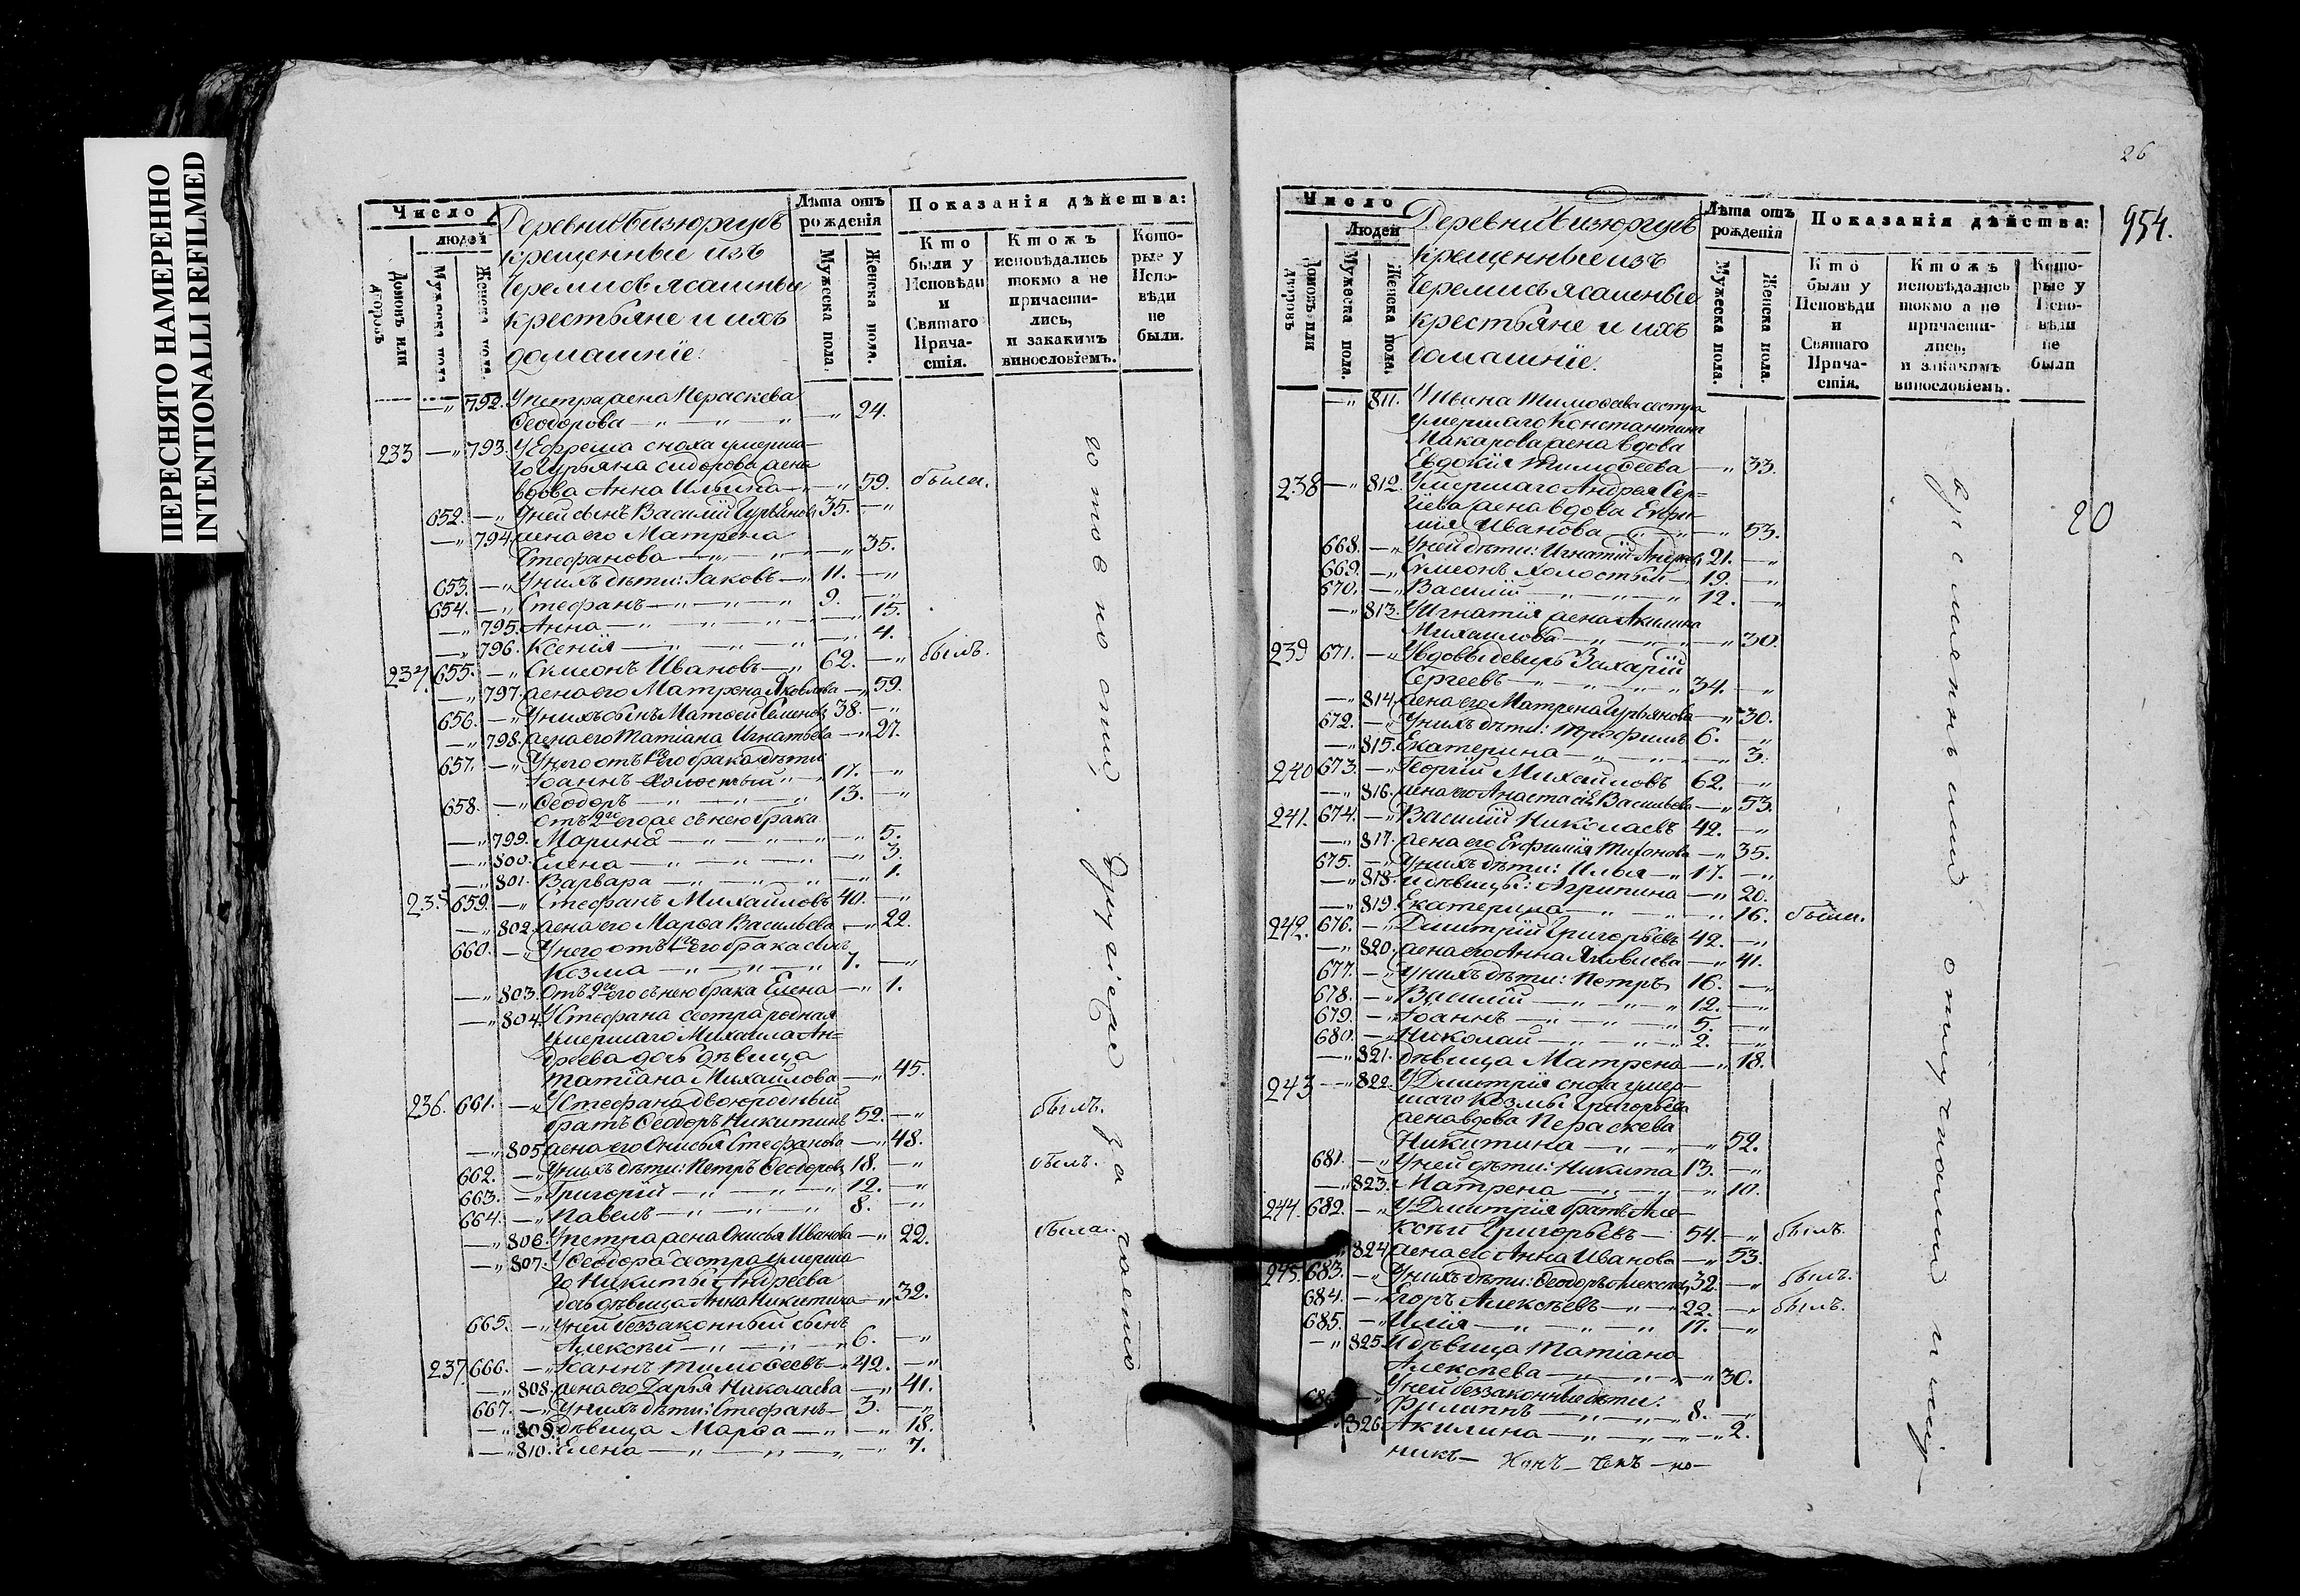 ПЕРЕСНЯТО НАМЕРЕННО
INTENTIONALLI REFILMED
Число
людей
Домовъ или дворовъ
Мужеска пола
Женска пола.
Деревни Бизюргупъ
крещенные изъ
Черемисъ ясашные
крестьяне и ихъ
домашніе:
Лѣта отъ рожденія
Мужеска пола.
Женска пола.
Показанія дѣйства:
Кто были у Исповѣди и Святаго Причастія.
Ктожъ исповѣдались токмо а не причастились, и закакимъ винословіемъ.
Которые у Исповѣди не были.
—" 792. У петра жена Пераскева
Ѳеодорова —" —" —" —" 24.
233 —" 793. У Ефрема сноха умерша
го Гурьяна Сидорова жена
вдова Анна Ильина —" —" 59. были.
652. —" У ней сынъ Василій Гурьяновъ 35. —"
—" 794. жена его Матрена
Стефанова —" —" —" 35.
653. —" У нихъ дѣти: Іаковъ —" 11. —"
654. —" Стефанъ —" —" —" 9. —"
—" 795. Анна —" —" —" —" 15.
—" 796. Ксенія —" —" —" —" 4.
234. 655. —" Сѵмеонъ Ивановъ —" 62. —" былъ.
—" 797. жена его Матрена Яковлева —" 59.
656. —" У нихъ сынъ Матѳей Семеновъ 38. —"
—" 798. жена его Татіана Игнатьева —" 27.
657. —" У него отъ 1го его брака дѣти
Іоаннъ холостый —" 17. —"
658. —" Ѳеодоръ —" —" —" 13. —"
отъ 2го его же съ нею брака
—" 799. Марина —" —" —" —" 5.
—" 800. Елена —" —" —" —" 3.
—" 801. Варвара —" —" —" —" 1.
235 659. —" Стефанъ Михайловъ 40. —"
—" 802. жена его Марѳа Васильева —" 22.
660. —" У него отъ 1го его брака сынъ
Козма —" —" —" 7. —"
—" 803. Отъ 2го его съ нею брака Елена —" 1.
—" 804. У Стефана сестра родная
умершаго Михаила Ан=
дреева дочь дѣвица
Татіана Михайлова —" 45.
236. 661. —" У Стефана двоюродный
братъ Ѳеодоръ Никитинъ 52. —" былъ.
—" 805. жена его Онисья Стефанова —" 48.
662. —" У нихъ дѣти: Петръ Ѳеодоровъ 18. —" былъ.
663. —" Григорій —" —" —" 12. —"
664. —" Павелъ —" —" —" 8. —"
—" 806. У петра жена Онисья Иванова —" 22. была.
—" 807. У Ѳеодора сестра умерша
го Никиты Андреева
дочь дѣвица Анна Никитина —" 32.
665. —" У ней беззаконный сынъ
Алексѣй —" —" —" 6. —"
237. 666. —" Іоаннъ Тимоѳеевъ —" 42. —"
—" 808. жена его Дарья Николаева —" 41.
667. —" У нихъ дѣти: Стефанъ — 3. —"
—" 809. дѣвица Марѳа —" —" 18.
—" 810. Елена —" —" —" —" 7.
26
954.
20
Число
Людей
Домовъ или дворовъ
Мужеска пола.
Женска пола.
Деревни Бизюргупъ
крещенные изъ
Черемисъ ясашные
крестьяне и ихъ
домашніе:
Лѣта отъ рожденія
Мужеска пола.
Женска пола.
Показанія дѣйства:
Кто были у Исповѣди и Святаго Причастія.
Ктожъ исповѣдались токмо а не причастились, и закакимъ винословіемъ.
Которые у Исповѣди не были
—" 811. Тимоѳеева сестра
умершаго Константина
Макарова жена вдова
Евдокія Тимоѳеева —" 33.
238 —" 812. Умершаго Андрея Сер=
гіева жена вдова Евѳи=
мія Иванова —" —" 53.
668. —" У ней дѣти: Игнатій Андреевъ 21. —"
669. —" Сѵмеонъ холостый —" 19. —"
670. —" Василій —" —" —" 12. —"
—" 813. У Игнатія жена Акилина
Михайлова —" —" —" 30.
239 671. —" У вдовы деверь Захарій
Сергеевъ —" —" —" 34. —"
—" 814. жена его Матрена Гурьянова —" 30.
672. —" У нихъ дѣти: Трофимъ 6. —"
—" 815. Екатерина —" —" —" 3.
240 673. —" Георгій Михайловъ 62. —"
—" 816. жена его Анастасія Васильева —" 53.
241. 674. —" Василій Николаевъ 42. —"
—" 817. жена его Евфимія Тихонова —" 35.
675. —" У нихъ дѣти: Илья —" 17. —"
—" 818. и дѣвицы: Агрипина —" 20.
—" 819. Екатерина —" —" —" 16. были.
242. 676. —" Димитрій Григорьевъ 42. —"
—" 820. жена его Анна Яковлева —" 41.
677. —" У нихъ дѣти: Петръ 16. —"
678. —" Василій —" —" —" 12. —"
679. —" Іоаннъ —" —" —" 5. —"
680. —" Николай —" —" —" 2. —"
—" 821. дѣвица Матрена —" 18.
243 —" 822. У Димитрія сноха умер=
шаго Козмы Григорьева
жена вдова Пераскева
Никитина —" —" —" 52.
681. —" У ней дѣти: Никита 13. —"
—" 823. Матрена —" —" —" 10.
244. 682. —" У Димитрія братъ Але=
ксѣй Григорьевъ — 54. —" былъ.
824. жена его Анна Иванова —" 53.
245. 683. —" У нихъ дѣти: Ѳеодоръ Алексѣевъ 32. —" былъ.
684. —" Егоръ Алексѣевъ —" 22. —" былъ.
685. —" Илія —" —" —" 17. —"
—" 825. И дѣвица Татіана
Алексѣева —" —" —" 30.
686. —" У ней беззаконные дѣти:
Филиппъ —" —" —" 8. —"
826. Акилина —" —" —" 2.
никъ —